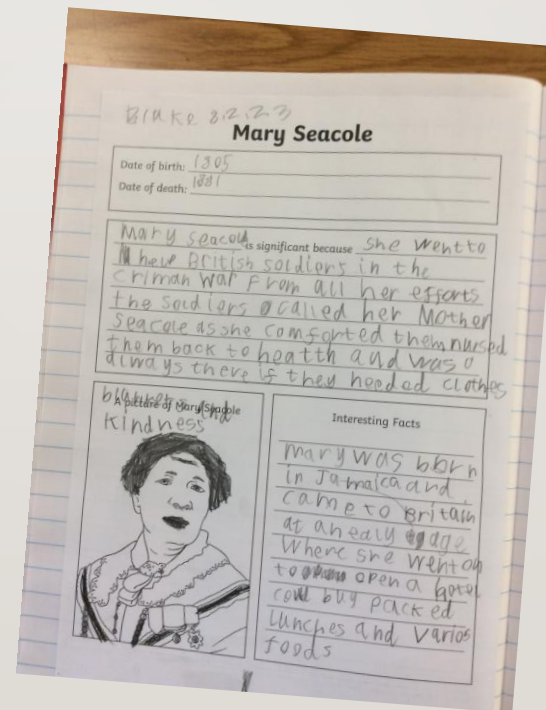 Blake 8.2.23
Mary Seacole
Date of birth: 1805
Date of death: 1881
Mary seacole is significant because she went to
have British soldiers in the
criman war From all her efforts
the soldiers called her Mother
Seacole as she comforted them nursed
them back to health and was
always there if they needed clothes
blankets and
A picture of Mary Seacole
kindness
Interesting Facts
mary was born
in Jamaica and
came to Britain
at an ealy age
Where she went on
to open a hotel
buy packed
lunches and varios
foods